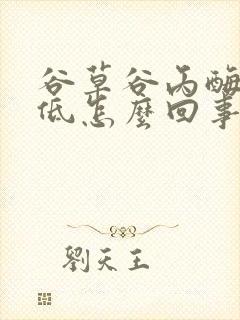 谷草谷丙酶
低怎麼回事
劉天王